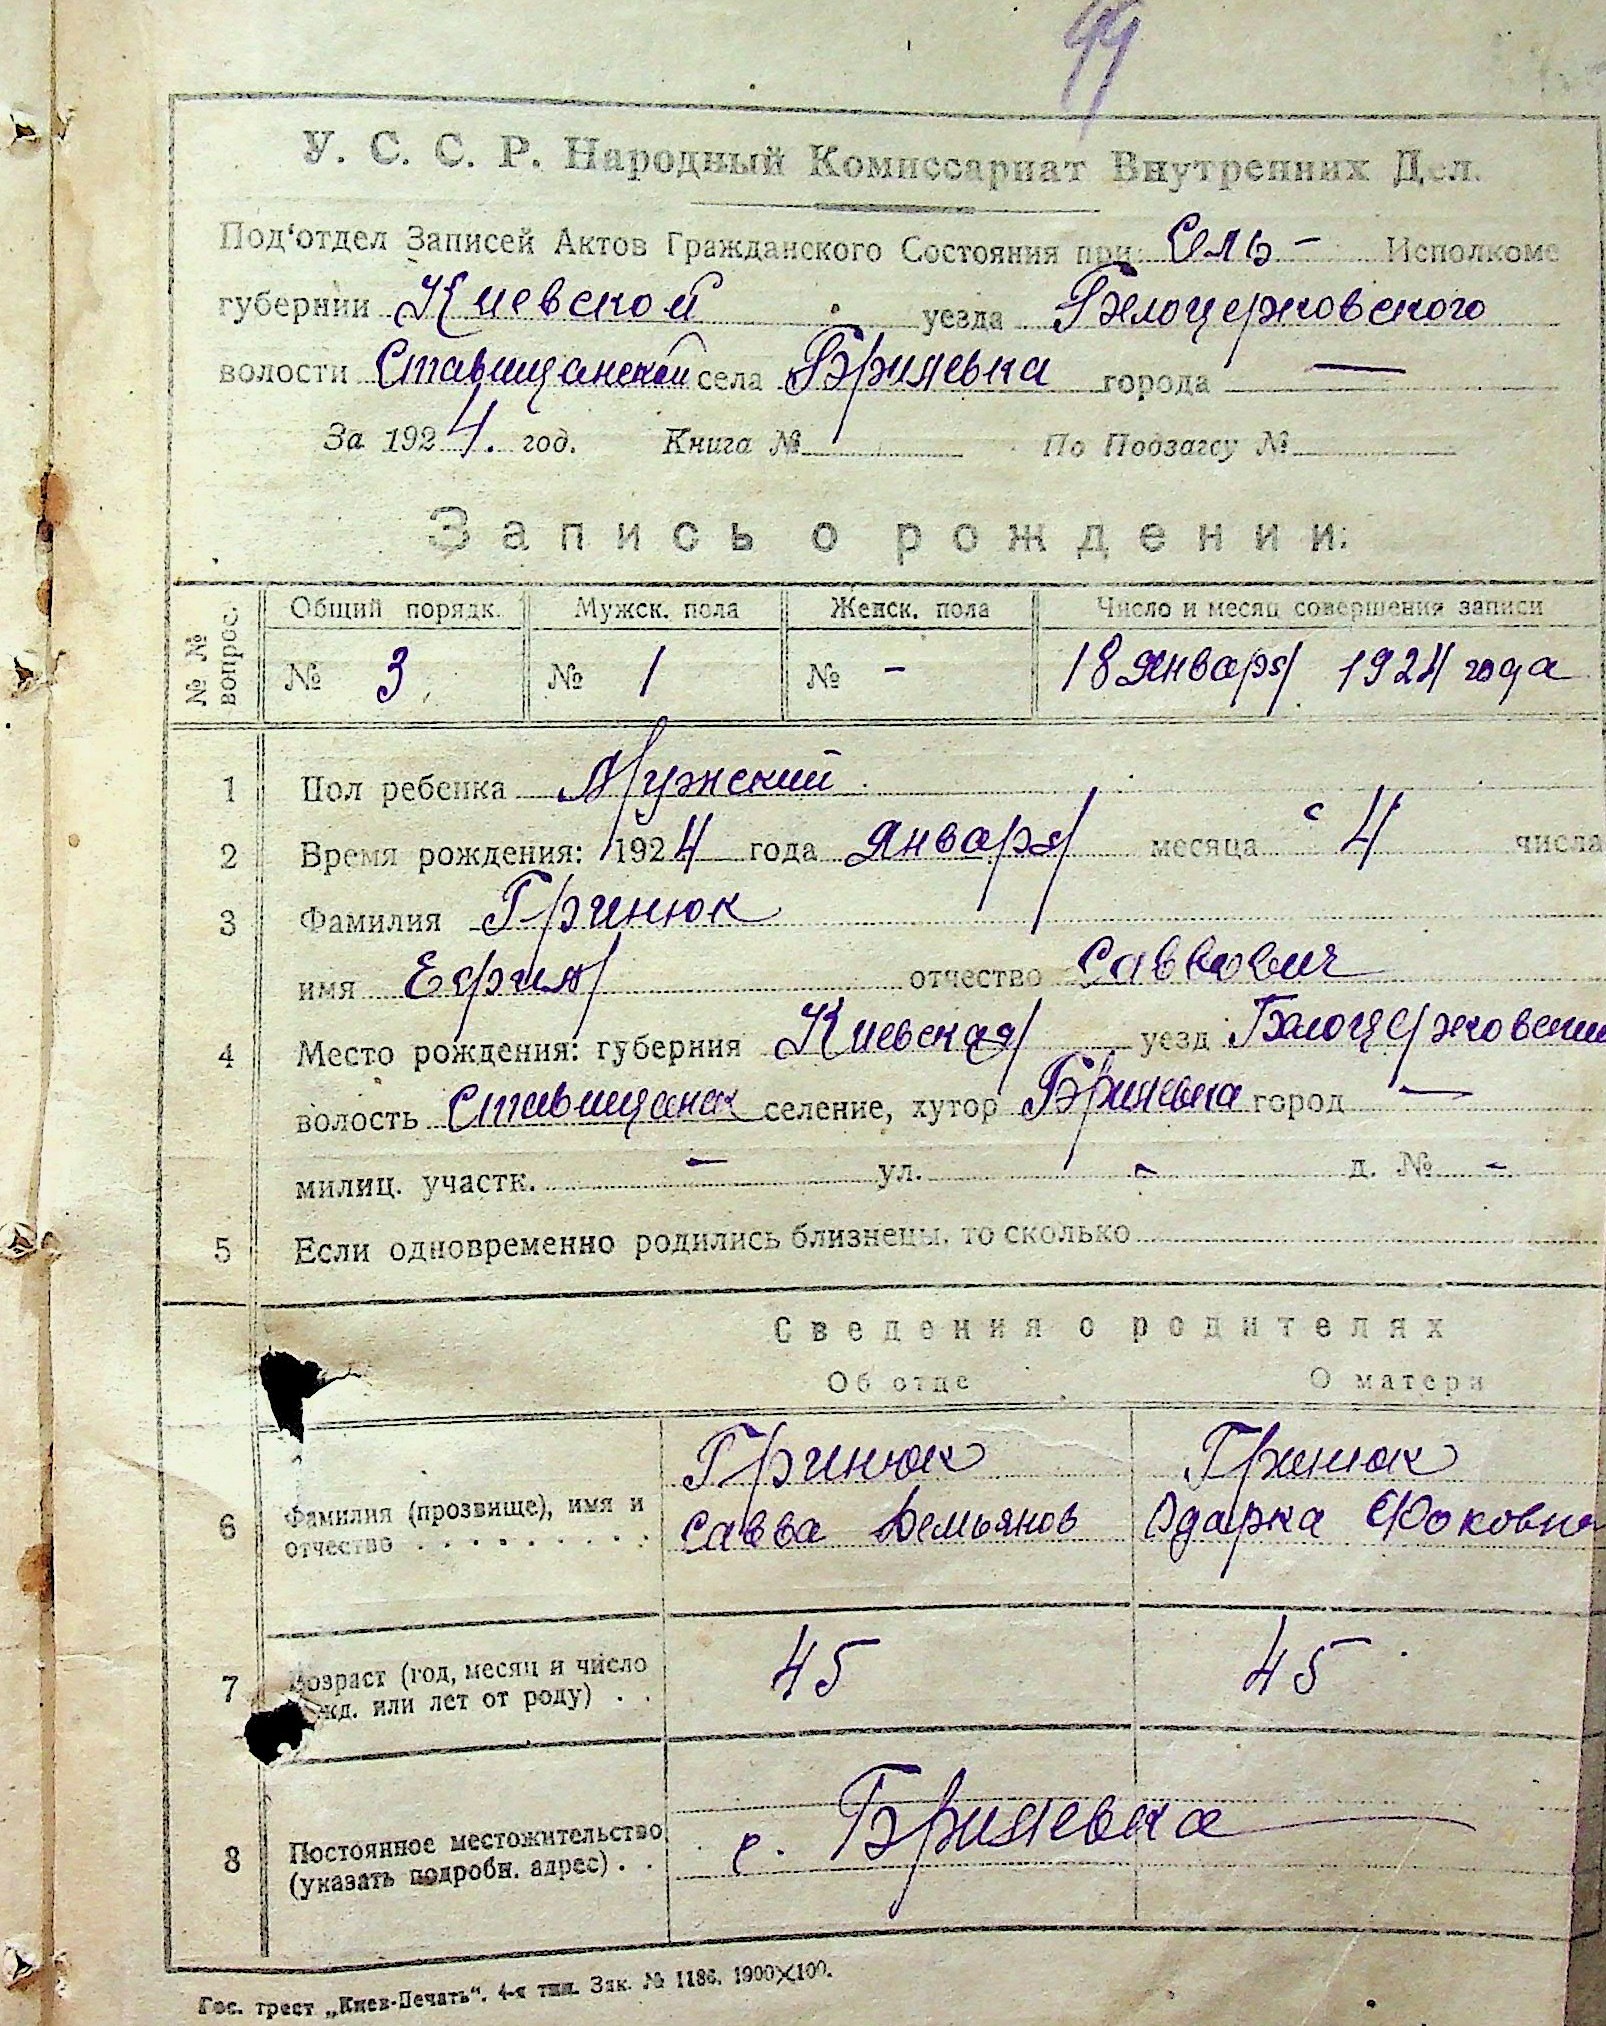 99
У. С. С. Р. Народный Комиссариат Внутренних Дел.
Под‘отдел Записей Актов Гражданского Состояния при Сель- Исполкоме
губернии Киевской уезда Белоцерковского
волости Ставищанской села Брилевка города —
За 1924. год. Книга № По Подзагсу №
Запись о рождении.
№ № вопрос. Общий порядк. Мужск. пола Женск. пола Число и месяц совершения записи
№ 3 № 1 № - 18 января 1924 года
1 Пол ребенка Мужский
2 Время рождения: 1924 года января месяца с 4 числа
3 Фамилия Гринюк
имя Ефрим отчество Саввович
4 Место рождения: губерния Киевская уезд Белоцерковский
волость Ставищанск селение, хутор Брилевка город —
милиц. участк. - ул. - д. № -
5 Если одновременно родились близнецы, то сколько
Сведения о родителях
Об отце О матери
6 Фамилия (прозвище), имя и отчество Гринюк Савва Демьянов Гринюк Одарка Фоковна
7 Возраст (год, месяц и число рожд. или лет от роду) 45 45
8 Постоянное местожительство (указать подробн. адрес) с. Брилевка
Гос. трест „Киев-Печать“. 4-я тип. Зак. № 1186. 1900×100.